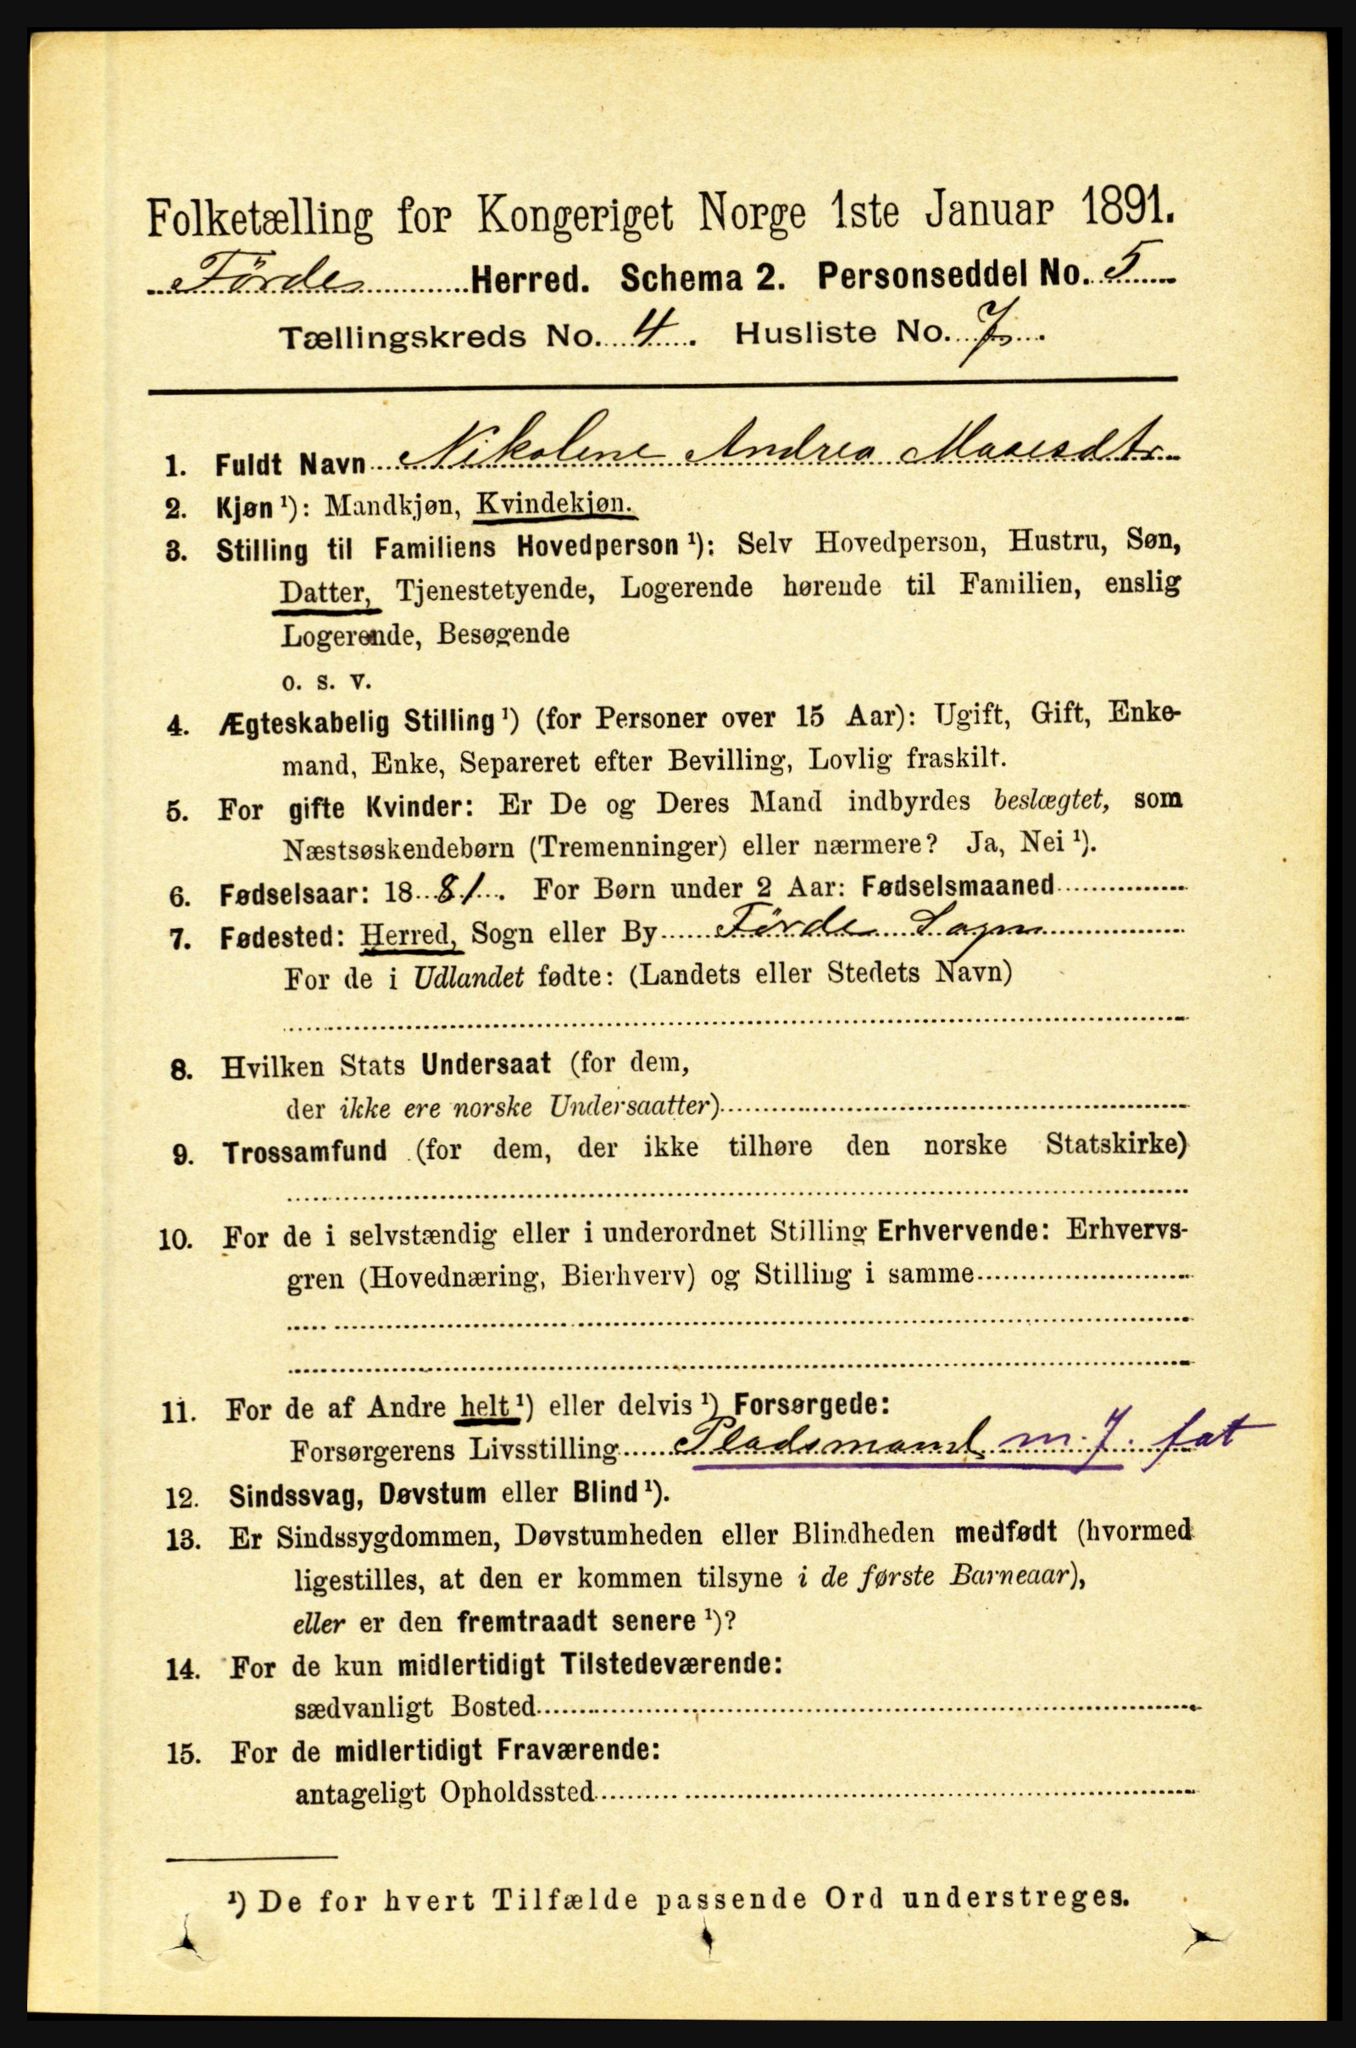 Folketælling for Kongeriget Norge 1ste Januar 1891.
Førde Herred. Schema 2. Personseddel No. 5
Tællingskreds No. 4. Husliste No. 7.
1. Fuldt Navn Nikolene Andrea Mosesdtr
2. Kjøn¹): Mandkjøn, Kvindekjøn.
3. Stilling til Familiens Hovedperson¹): Selv Hovedperson, Hustru, Søn,
Datter, Tjenestetyende, Logerende hørende til Familien, enslig
Logerende, Besøgende
o. s. v.
4. Ægteskabelig Stilling¹) (for Personer over 15 Aar): Ugift, Gift, Enke-
mand, Enke, Separeret efter Bevilling, Lovlig fraskilt.
5. For gifte Kvinder: Er De og Deres Mand indbyrdes beslægtet, som
Næstsøskendebørn (Tremenninger) eller nærmere? Ja, Nei¹).
6. Fødselsaar: 1881. For Børn under 2 Aar: Fødselsmaaned
7. Fødested: Herred, Sogn eller By Førde Sogn
For de i Udlandet fødte: (Landets eller Stedets Navn)
8. Hvilken Stats Undersaat (for dem,
der ikke ere norske Undersaatter)
9. Trossamfund (for dem, der ikke tilhøre den norske Statskirke)
10. For de i selvstændig eller i underordnet Stilling Erhvervende: Erhvervs-
gren (Hovednæring, Bierhverv) og Stilling i samme
11. For de af Andre helt¹) eller delvis¹) Forsørgede:
Forsørgerens Livsstilling Pladsmand m. J. fat
12. Sindssvag, Døvstum eller Blind¹).
13. Er Sindssygdommen, Døvstumheden eller Blindheden medfødt (hvormed
ligestilles, at den er kommen tilsyne i de første Barneaar),
eller er den fremtraadt senere¹)?
14. For de kun midlertidigt Tilstedeværende:
sædvanligt Bosted
15. For de midlertidigt Fraværende:
antageligt Opholdssted
¹) De for hvert Tilfælde passende Ord understreges.